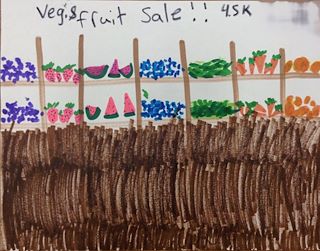 Veg.& fruit Sale!! 4.5K